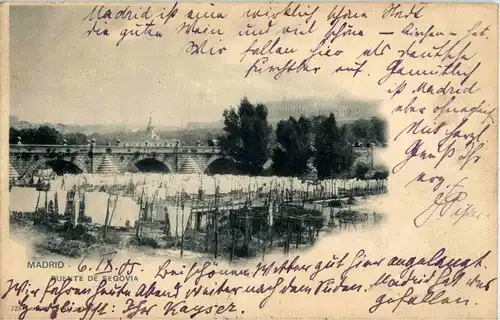 Madrid ist eine wirklich schöne Stadt
die guten Wein und viel schöne Kirchen hat.
Wir fallen hier als deutsche
furchtbar auf. Gemütlich
ist Madrid
aber ohne
Mit herzl.
Gruß Ihr
erg.
MADRID - 6.IX.05.
PUENTE DE SEGOVIA
Bei schönem Wetter gut hier angelangt.
Wir fahren heute Abend weiter nach dem Süden. Madrid hat uns
gefallen.
Ihr Kayser.